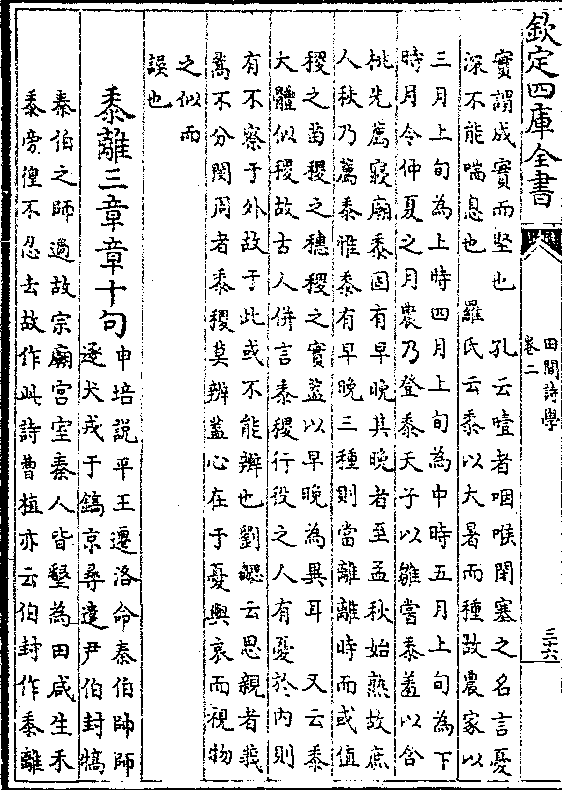 欽定四庫全書
田間詩學
卷二
三六
實謂成實而堅也　孔云噎者咽喉閉塞之名言憂
深不能喘息也　羅氏云黍以大暑而種故農家以
三月上旬為上時四月上旬為中時五月上旬為下
時月令仲夏之月農乃登黍天子以雛嘗黍羞以含
桃先薦寢廟黍固有早晚其晚者至孟秋始熟故庶
人秋乃薦黍惟黍有早晚三種則當離離時而或值
稷之苗稷之穗稷之實蓋以早晚為異耳　又云黍
大體似稷故古人併言黍稷行役之人有憂於內則
有不察于外故于此或不能辨也劉勰云思親者莪
蒿不分閔周者黍稷莫辨蓋心在于憂與哀而視物
之似而
誤也
黍離三章章十句
申培説平王遷洛命秦伯帥師
逐犬戎于鎬京尋遣尹伯封犒
秦伯之師過故宗廟宫室秦人皆墾為田咸生禾
黍旁徨不忍去故作此詩曹植亦云伯封作黍離